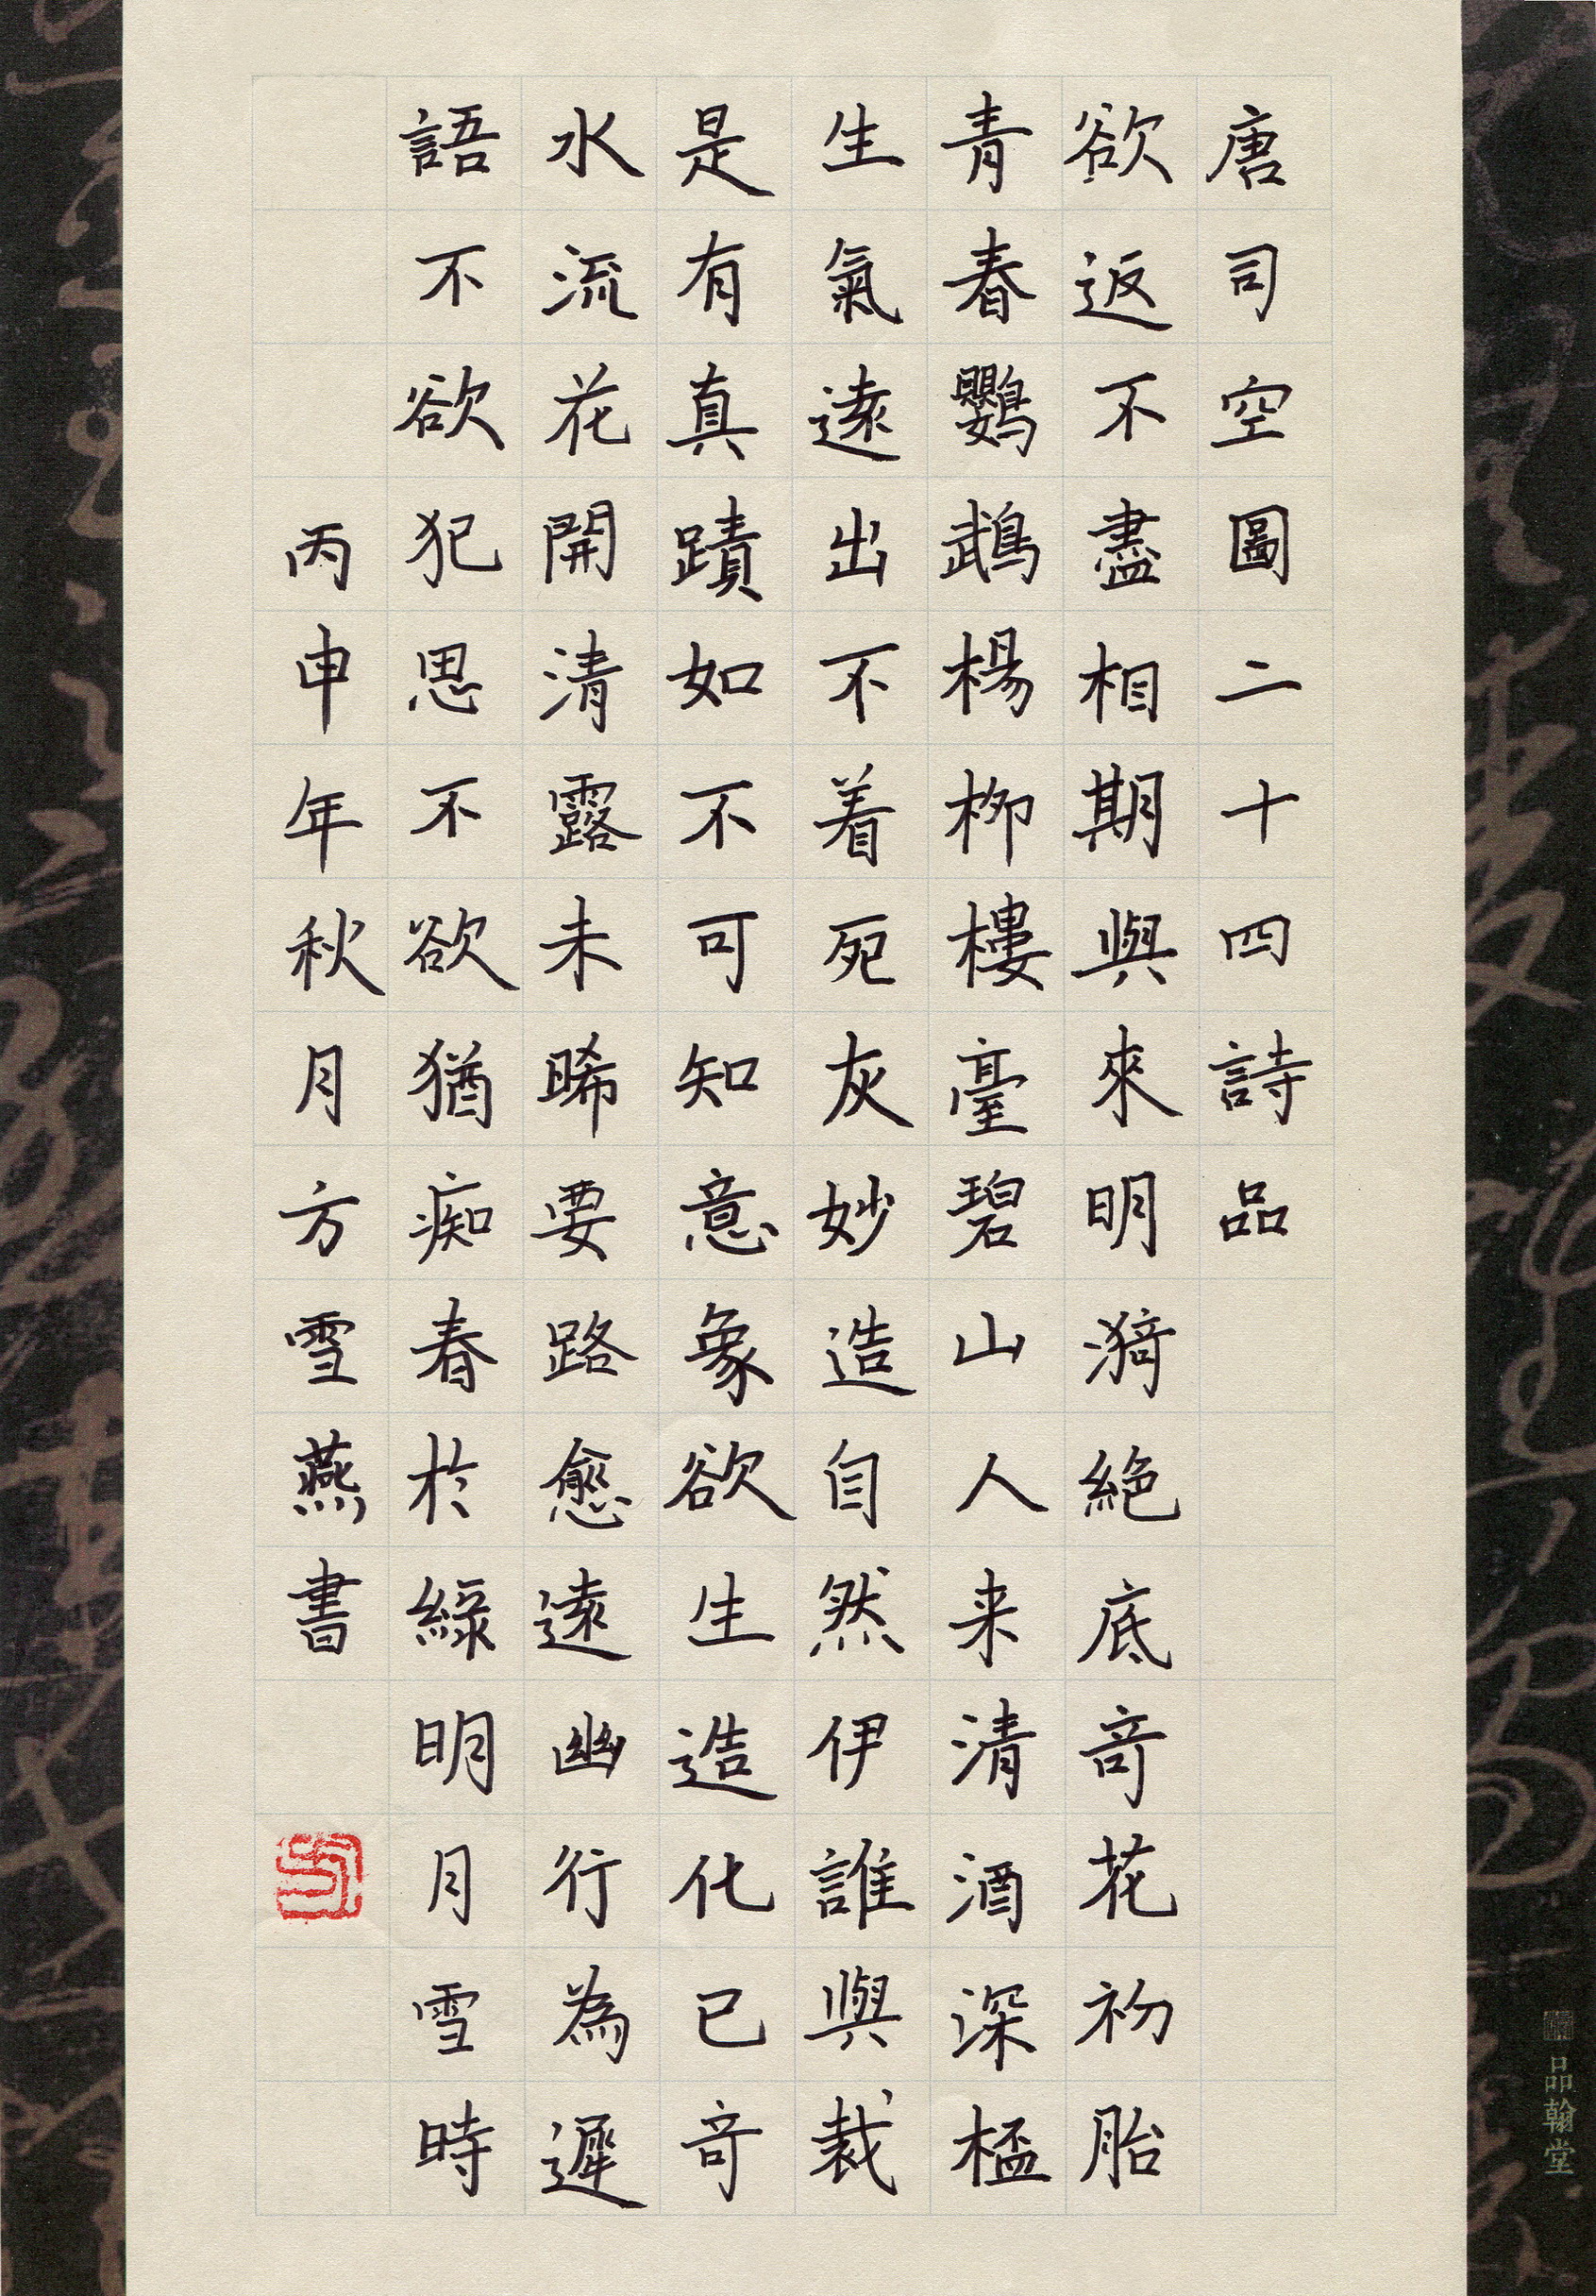 唐司空圖二十四詩品
欲返不盡相期與來明漪絕底奇花初胎
青春鸚鵡楊柳樓臺碧山人来清酒深桮
生氣遠出不着死灰妙造自然伊誰與裁
是有真蹟如不可知意象欲生造化已奇
水流花開清露未晞要路愈遠幽行為遲
語不欲犯思不欲猶痴春於綠明月雪時
丙申年秋月方雪燕書
品翰堂